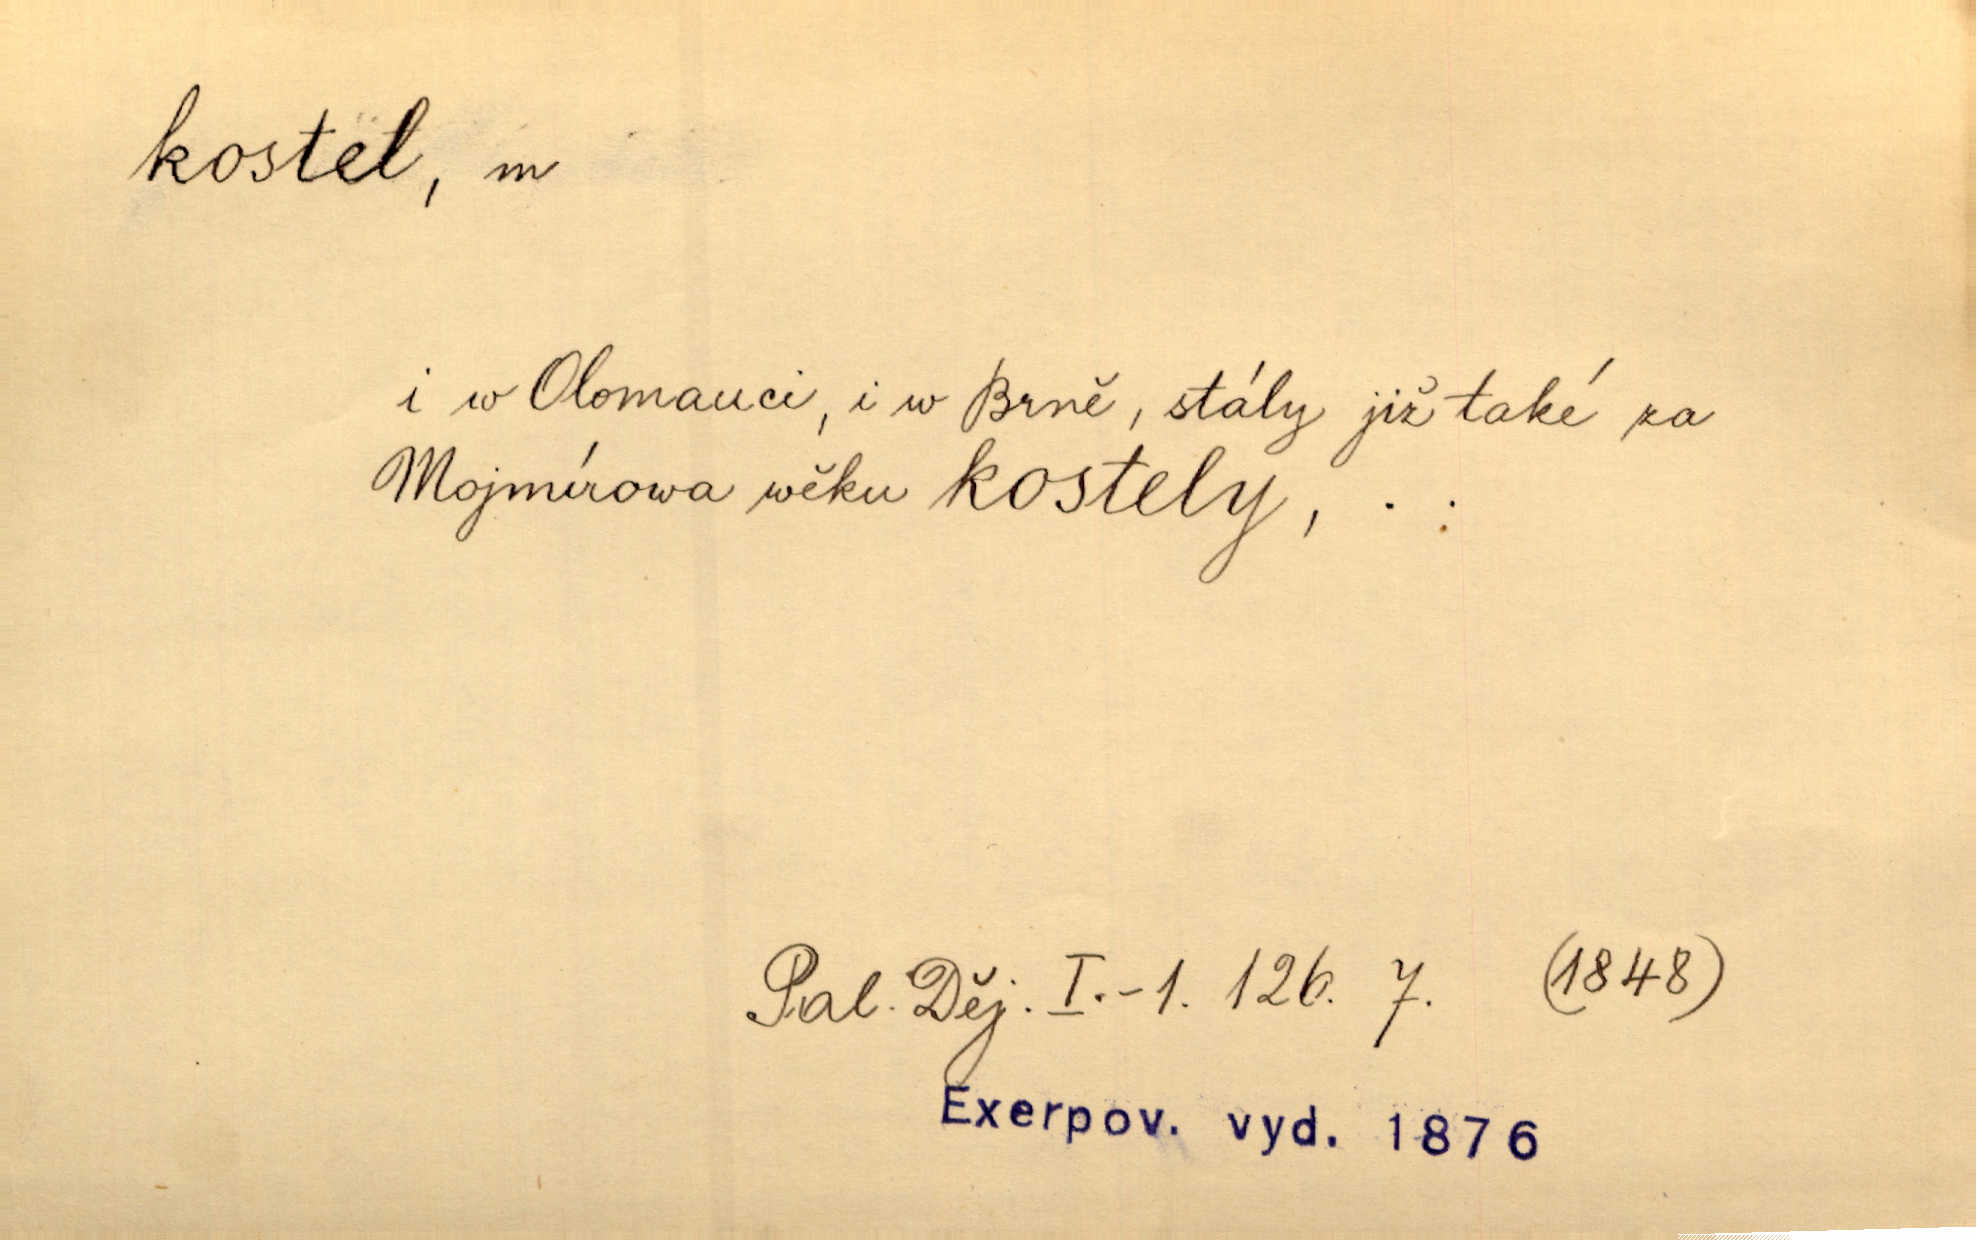 kostel, m
i w Olomauci, i w Brně, stály již také za
Mojmírowa wěku kostely, . .
Pal. Děj. I.-1. 126. 7. (1848)
Exerpov. vyd. 1876